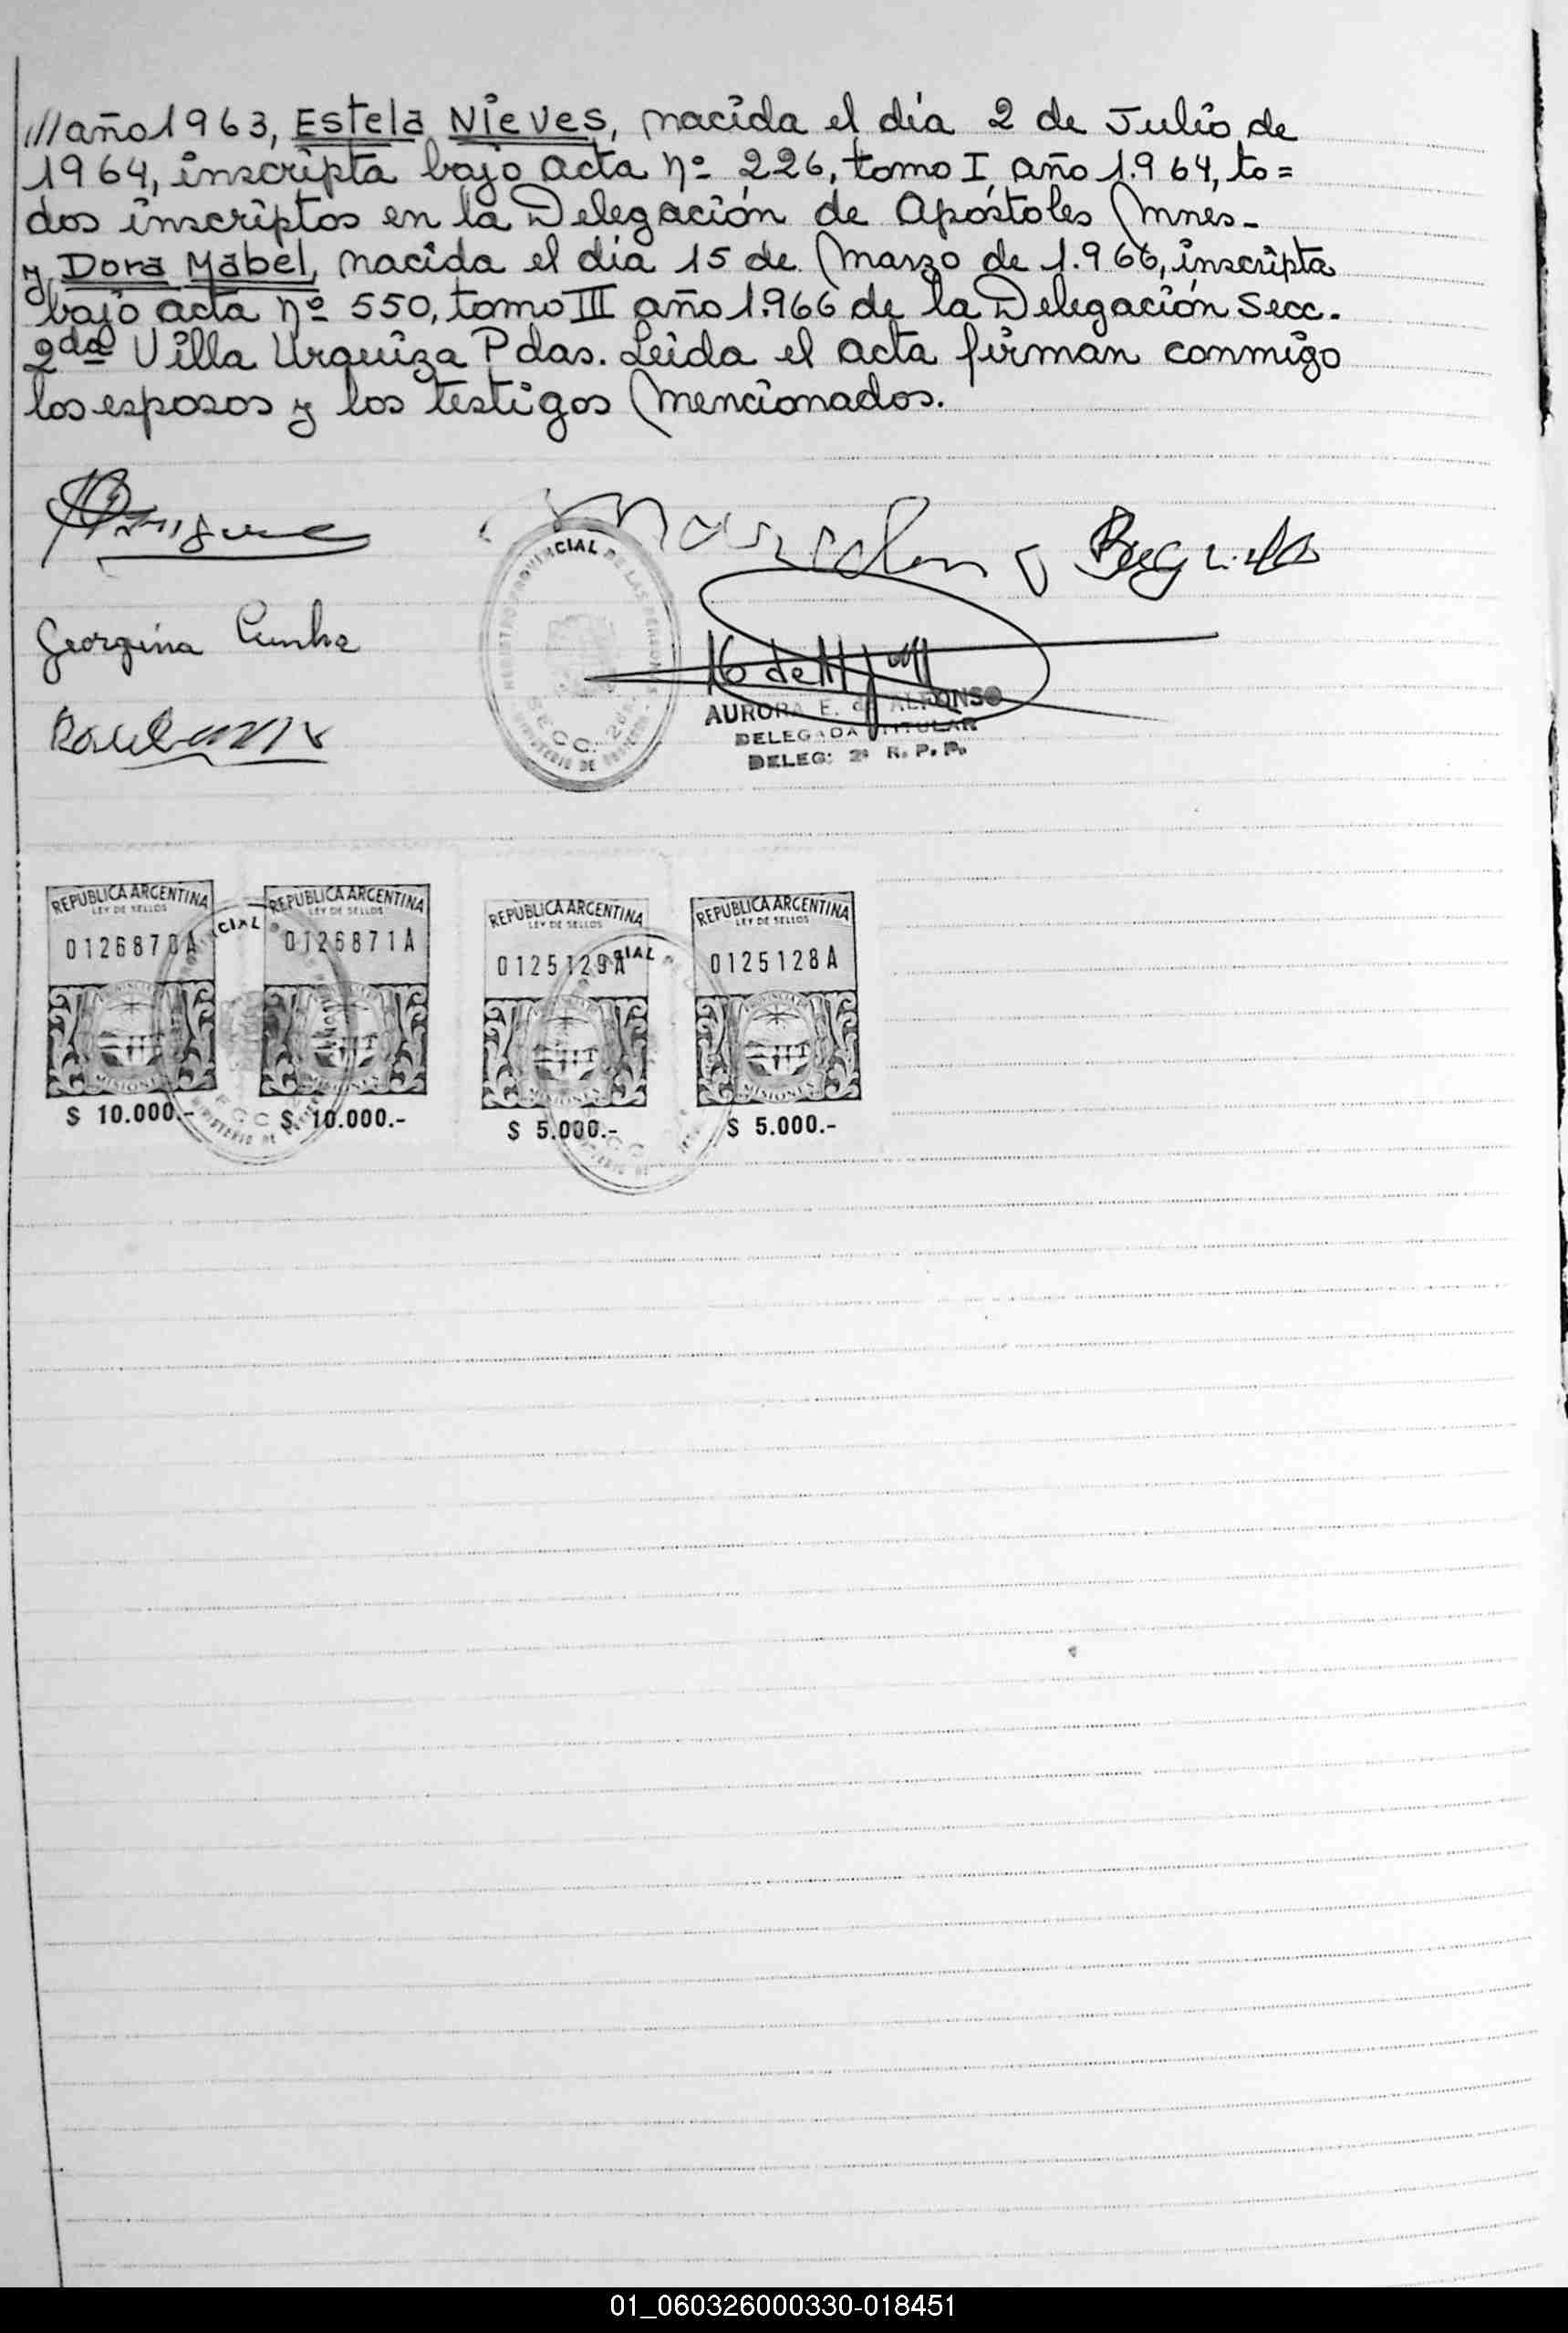 ///año 1963, Estela Nieves, nacida el día 2 de Julio de
1964, inscripta bajo acta nº 226, tomo I, año 1.964, to=
dos inscriptos en la Delegación de Apóstoles Mnes-
y Dora Mabel, nacida el día 15 de Marzo de 1.966, inscripta
bajo acta nº 550, tomo III año 1.966 de la Delegación Secc.
2da Villa Urquiza Pdas. Leida el acta firman conmigo
los esposos y los testigos mencionados.
Georgina Cunha
AURORA E. de ALFONSO
DELEGADA TITULAR
DELEG: 2ª R. P. P.
REPUBLICA ARGENTINA
LEY DE SELLOS
0126870A
MISIONES
$ 10.000.-
REPUBLICA ARGENTINA
LEY DE SELLOS
0126871A
MISIONES
$ 10.000.-
REPUBLICA ARGENTINA
LEY DE SELLOS
0125129A
MISIONES
$ 5.000.-
REPUBLICA ARGENTINA
LEY DE SELLOS
0125128A
MISIONES
$ 5.000.-
01_060326000330-018451